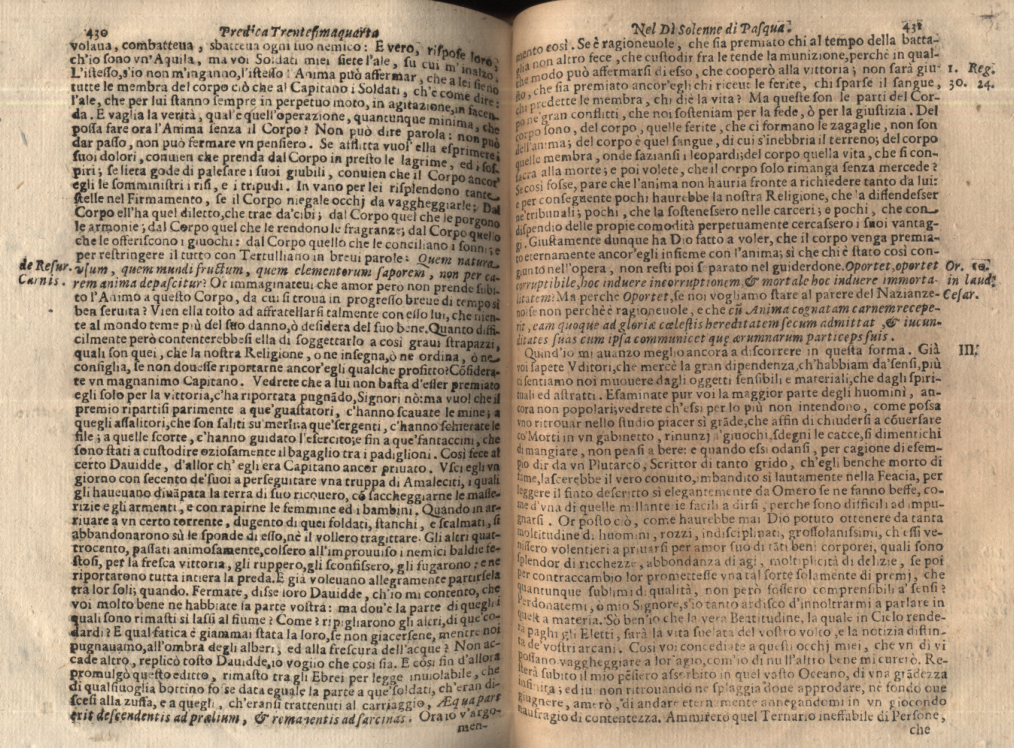 430 Predica Trentesimaquarta
volaua, combatteua, sbatteua ogni suo nemico: E vero, rispose loro:
ch'io sono vn'Aquila, ma voi Soldati miei siete l'ale, su cui m'inalzo.
L'istesso, s'io non m'inganno, l'istesso l'Anima può affermar, che a lei sieno
tutte le membra del corpo ciò che al Capitano i Soldati, ch'è come dire:
l'ale, che per lui stanno sempre in perpetuo moto, in agitazione, in facen-
da. E vaglia la verità, qual'è quell'operazione, quantunque minima, che
possa fare ora l'Anima senza il Corpo? Non può dire parola: non può
dar passo, non può fermare vn pensiero. Se afflitta vuol'ella esprimere i
suoi dolori, conuien che prenda dal Corpo in presto le lagrime, ed i sos-
piri; se lieta gode di palesare i suoi giubili, conuien che il Corpo ancor'
egli le somministri i risi, e i tripudi. In vano per lei risplendono tante
stelle nel Firmamento, se il Corpo niegale occhj da vagheggiarle: Dal
Corpo ell'ha quel diletto, che trae da'cibi; dal Corpo quel che le porgono
le armonie; dal Corpo quel che le rendono le fragranze; dal Corpo quello
che le offeriscono i giuochi: dal Corpo quello che le conciliano i sonni; e
per restringere il tutto con Tertulliano in breui parole: Quem natura
de Resur. Carnis. vsum, quem mundi fructum, quem elementorum saporem, non per ca-
rem anima depascitur? Or immaginateui che amor però non prende subi-
to l'Animo a questo Corpo, da cui si troua in progresso breue di tempo sì
ben seruita? Vien ella tosto ad affratellarsi talmente con esso lui, che men-
te al mondo teme più del suo danno, ò desidera del suo bene. Quanto diffi-
cilmente però contenterebbesi ella di soggettarlo a così graui strapazzi,
quali son quei, che la nostra Religione, o ne insegna, ò ne ordina, ò ne
consiglia, se non douesse riportarne ancor'egli qualche profitto? Cõsidera-
te vn magnanimo Capitano. Vedrete che a lui non basta d'esser premiato
egli solo per la vittoria, c'ha riportata pugnãdo, Signori nò: ma vuol che il
premio ripartisi parimente a que'guastatori, c'hanno scauate le mine; a
quegli assalitori, che son saliti su'merli; a que'sergenti, c'hanno schierate le
file; a quelle scorte, c'hanno guidato l'esercito; e fin a que'fantaccini, che
sono stati a custodire oziosamente il bagaglio tra i padiglioni. Così fece al
certo Dauidde, d'allor ch'egli era Capitano ancor priuato. Vscì egli vn
giorno con secento de'suoi a perseguitare vna truppa di Amaleciti, i quali
gli haueuano diuãpata la terra di suo ricouero, cõ saccheggiarne le masse-
rizie e gli armenti, e con rapirne le femmine ed i bambini. Quando in ar-
riuare a vn certo torrente, dugento di quei soldati, stanchi, e scalmati, si
abbandonarono sù le sponde di esso, nè il vollero tragittare. Gli altri quat-
trocento, passati animosamente, colsero all'improuuiso i nemici baldi e fe-
stosi, per la fresca vittoria, gli ruppero, gli sconfissero, gli fugarono; e ne
riportarono tutta intiera la preda. E già voleuano allegramente partirsela
trà lor soli; quando. Fermate, disse loro Dauidde, ch'io mi contento, che
voi molto bene ne habbiate la parte vostra: ma dou'è la parte di quegli i
quali sono rimasti sì lassi al fiume? Come? ripigliarono gli altri, di que'co-
dardi? E qual fatica è giammai stata la loro, se non giacersene, mentre noi
pugnauamo, all'ombra degli alberi, ed alla frescura dell'acque? Non ac-
cade altro, replicò tosto Dauidde, io voglio che così sia. E così fin d'allora
promulgò questo editto, rimasto tra gli Ebrei per legge inuiolabile, che
di qualsiuoglia bottino fosse data eguale la parte a que'soldati, ch'eran di-
scesi alla zuffa, e a quegli, ch'eransi trattenuti al carriaggio, Æqua pars
erit descendentis ad prælium, & remanentis ad sarcinas. Ora io v'argo-
men-
Nel Dì Solenne di Pasqua. 431
mento così. Se è ragioneuole, che sia premiato chi al tempo della batta-
glia non altro fece, che custodir fra le tende la munizione, perchè in qual-
che modo può affermarsi di esso, che cooperò alla vittoria; non sarà giu- 1. Reg.
sto, che sia premiato ancor'egli chi riceuè le ferite, chi sparse il sangue, 30. 24.
chi predette le membra, chi diè la vita? Ma queste son le parti del Cor-
po ne'gran conflitti, che noi sosteniam per la fede, ò per la giustizia. Del
corpo sono, del corpo, quelle ferite, che ci formano le zagaglie, non son
dell'anima; del corpo è quel sangue, di cui s'inebbria il terreno; del corpo
quelle membra, onde saziansi i leopardi; del corpo quella vita, che si con-
sacra alla morte; e poi volete, che il corpo solo rimanga senza mercede?
Se così fosse, pare che l'anima non hauria fronte a richiedere tanto da lui:
e per conseguente pochi haurebbe la nostra Religione, che la difendesser
ne'tribunali; pochi, che la sostenessero nelle carceri; e pochi, che con
dispendio delle propie comodità perpetuamente cercassero i suoi vantag-
gi. Giustamente dunque ha Dio fatto a voler, che il corpo venga premia-
to eternamente ancor'egli insieme con l'anima; sì che chi è stato così con-
giunto nell'opera, non resti poi separato nel guiderdone. Oportet, oportet Or. 10.
corruptibile, hoc induere incorruptionem & mortale hoc induere immorta- in laud.
litatem: Ma perchè Oportet, se noi vogliamo stare al parere del Nazianze- Cesar.
no, se non perchè è ragioneuole, e che cũ Anima cognatam carnem recepe-
rit, eam quoque ad gloriæ cœlestis hereditatem secum admittat, & iucun-
ditates suas cum ipsa communicet quæ ærumnarum particeps fuit.
Quind'io mi auanzo meglio ancora a discorrere in questa forma. Già III.
voi sapete Vditori, che mercè la gran dipendenza, ch'habbiam da'sensi, più
ci sentiamo noi muouere dagli oggetti sensibili e materiali, che dagli spiri-
tuali ed astratti. Esaminate pur voi la maggior parte degli huomini, an-
cora non popolari; vedrete ch'essi per lo più non intendono, come possa
vno ritrouar nello studio piacer sì grãde, che affin di chiudersi a cõuersare
co'Morti in vn gabinetto, rinunzj a'giuochi, sdegni le cacce, si dimentichi
di mangiare, non pensi a bere: e quando essi odansi, per cagione di esem-
pio dir da vn Plutarco, Scrittor di tanto grido, ch'egli benche morto di
fame, lascerebbe il vero conuito, imbandito sì lautamente nella Feacia, per
leggere il finto descritto sì elegantemente da Omero se ne fanno beffe, co-
me d'vna di quelle millanterie facili a dirsi, perche sono difficili ad impu-
gnarsi. Or posto ciò, come haurebbe mai Dio potuto ottenere da tanta
moltitudine di huomini, rozzi, indisciplinati, grossolanissimi, ch'essi ve-
nissero volentieri a priuarsi per amor suo di tãti beni corporei, quali sono
splendor di ricchezze, abbondanza di agi, moltiplicità di delizie, se poi
per contraccambio lor promettesse vna tal sorte solamente di premj, che
quantunque sublimi di qualità, non però fossero comprensibili a'sensi?
Perdonatemi, ò mio Signore, s'io tanto ardisco d'innoltrarmi a parlare in
questa materia. Sò ben'io che la vera Beatitudine, la quale in Cielo rende-
rà paghi gli Eletti, sarà la vista suelata del vostro volto, e la notizia distin-
ta de'vostri arcani. Così voi concediate a questi occhj miei, che vn dì vi
possano vagheggiare a lor'agio, com'io di null'altro bene mi curerò. Re-
sterà subito il mio pẽsiero assorbito in quel vasto Oceano, di vna grãdezza
infinita; ed iui non ritrouando nè spiaggia doue approdare, nè fondo oue
giugnere, amerò, di andare eternamente annegandomi in vn giocondo
naufragio di contentezza. Ammirerò quel Ternario ineffabile di Persone,
che